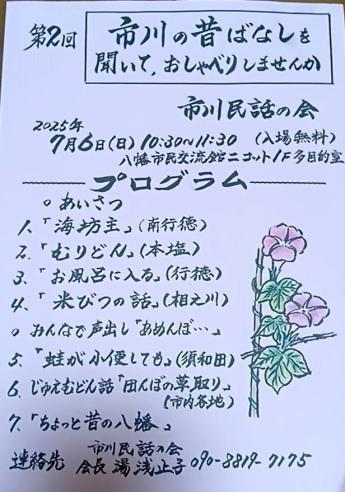 第2回
市川の昔ばなしを
聞いて、おしゃべりしませんか
市川民話の会
2025年
7月6日(日)10:30~11:30 (入場無料)
八幡市民交流館ニコット1F多目的室
プログラム
○ あいさつ
1.「海坊主」(南行徳)
2.「むりどん」(本塩)
3.「お風呂に入る」(行徳)
4.「米びつの話」(相之川)
○ みんなで声出し「あめんぼ…」
5.「蛙が小便しても」(須和田)
6.じゅえむどん話「田んぼの草取り」
(市内各地)
7.「ちょっと昔の八幡」
連絡先 市川民話の会
会長 湯浅止子 090-8819-7175